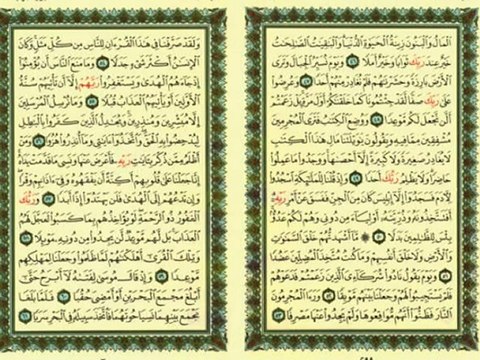 الْمَالُ وَالْبَنُونَ زِينَةُ الْحَيَوٰةِ الدُّنْيَا وَالْبَٰقِيَٰتُ الصَّٰلِحَٰتُ
خَيْرٌ عِندَ رَبِّكَ ثَوَابًا وَخَيْرٌ أَمَلًا ٤٦ وَيَوْمَ نُسَيِّرُ الْجِبَالَ وَتَرَى
الْأَرْضَ بَارِزَةً وَحَشَرْنَٰهُمْ فَلَمْ نُغَادِرْ مِنْهُمْ أَحَدًا ٤٧ وَعُرِضُوا
عَلَىٰ رَبِّكَ صَفًّا لَّقَدْ جِئْتُمُونَا كَمَا خَلَقْنَٰكُمْ أَوَّلَ مَرَّةٍ بَلْ زَعَمْتُمْ
أَلَّن نَّجْعَلَ لَكُم مَّوْعِدًا ٤٨ وَوُضِعَ الْكِتَٰبُ فَتَرَى الْمُجْرِمِينَ
مُشْفِقِينَ مِمَّا فِيهِ وَيَقُولُونَ يَٰوَيْلَتَنَا مَالِ هَٰذَا الْكِتَٰبِ
لَا يُغَادِرُ صَغِيرَةً وَلَا كَبِيرَةً إِلَّا أَحْصَىٰهَا وَوَجَدُوا مَا عَمِلُوا
حَاضِرًا وَلَا يَظْلِمُ رَبُّكَ أَحَدًا ٤٩ وَإِذْ قُلْنَا لِلْمَلَٰئِكَةِ اسْجُدُوا
لِءَادَمَ فَسَجَدُوا إِلَّا إِبْلِيسَ كَانَ مِنَ الْجِنِّ فَفَسَقَ عَنْ أَمْرِ رَبِّهِ
أَفَتَتَّخِذُونَهُ وَذُرِّيَّتَهُ أَوْلِيَاءَ مِن دُونِي وَهُمْ لَكُمْ عَدُوٌّ
بِئْسَ لِلظَّٰلِمِينَ بَدَلًا ٥٠ ۞ مَّا أَشْهَدتُّهُمْ خَلْقَ السَّمَٰوَٰتِ
وَالْأَرْضِ وَلَا خَلْقَ أَنفُسِهِمْ وَمَا كُنتُ مُتَّخِذَ الْمُضِلِّينَ عَضُدًا
٥١ وَيَوْمَ يَقُولُ نَادُوا شُرَكَاءِيَ الَّذِينَ زَعَمْتُمْ فَدَعَوْهُمْ
فَلَمْ يَسْتَجِيبُوا لَهُمْ وَجَعَلْنَا بَيْنَهُم مَّوْبِقًا ٥٢ وَرَءَا الْمُجْرِمُونَ
النَّارَ فَظَنُّوا أَنَّهُم مُّوَاقِعُوهَا وَلَمْ يَجِدُوا عَنْهَا مَصْرِفًا ٥٣
وَلَقَدْ صَرَّفْنَا فِي هَٰذَا الْقُرْءَانِ لِلنَّاسِ مِن كُلِّ مَثَلٍ وَكَانَ
الْإِنسَٰنُ أَكْثَرَ شَيْءٍ جَدَلًا ٥٤ وَمَا مَنَعَ النَّاسَ أَن يُؤْمِنُوا
إِذْ جَاءَهُمُ الْهُدَىٰ وَيَسْتَغْفِرُوا رَبَّهُمْ إِلَّا أَن تَأْتِيَهُمْ سُنَّةُ
الْأَوَّلِينَ أَوْ يَأْتِيَهُمُ الْعَذَابُ قُبُلًا ٥٥ وَمَا نُرْسِلُ الْمُرْسَلِينَ
إِلَّا مُبَشِّرِينَ وَمُنذِرِينَ وَيُجَٰدِلُ الَّذِينَ كَفَرُوا بِالْبَٰطِلِ
لِيُدْحِضُوا بِهِ الْحَقَّ وَاتَّخَذُوا ءَايَٰتِي وَمَا أُنذِرُوا هُزُوًا ٥٦ وَمَنْ
أَظْلَمُ مِمَّن ذُكِّرَ بِءَايَٰتِ رَبِّهِ فَأَعْرَضَ عَنْهَا وَنَسِيَ مَا قَدَّمَتْ يَدَاهُ
إِنَّا جَعَلْنَا عَلَىٰ قُلُوبِهِمْ أَكِنَّةً أَن يَفْقَهُوهُ وَفِي ءَاذَانِهِمْ وَقْرًا
وَإِن تَدْعُهُمْ إِلَى الْهُدَىٰ فَلَن يَهْتَدُوا إِذًا أَبَدًا ٥٧ وَرَبُّكَ
الْغَفُورُ ذُو الرَّحْمَةِ لَوْ يُؤَاخِذُهُم بِمَا كَسَبُوا لَعَجَّلَ لَهُمُ
الْعَذَابَ بَل لَّهُم مَّوْعِدٌ لَّن يَجِدُوا مِن دُونِهِ مَوْئِلًا ٥٨
وَتِلْكَ الْقُرَىٰ أَهْلَكْنَٰهُمْ لَمَّا ظَلَمُوا وَجَعَلْنَا لِمَهْلِكِهِم
مَّوْعِدًا ٥٩ وَإِذْ قَالَ مُوسَىٰ لِفَتَىٰهُ لَا أَبْرَحُ حَتَّىٰ
أَبْلُغَ مَجْمَعَ الْبَحْرَيْنِ أَوْ أَمْضِيَ حُقُبًا ٦٠ فَلَمَّا بَلَغَا
مَجْمَعَ بَيْنِهِمَا نَسِيَا حُوتَهُمَا فَاتَّخَذَ سَبِيلَهُ فِي الْبَحْرِ سَرَبًا ٦١